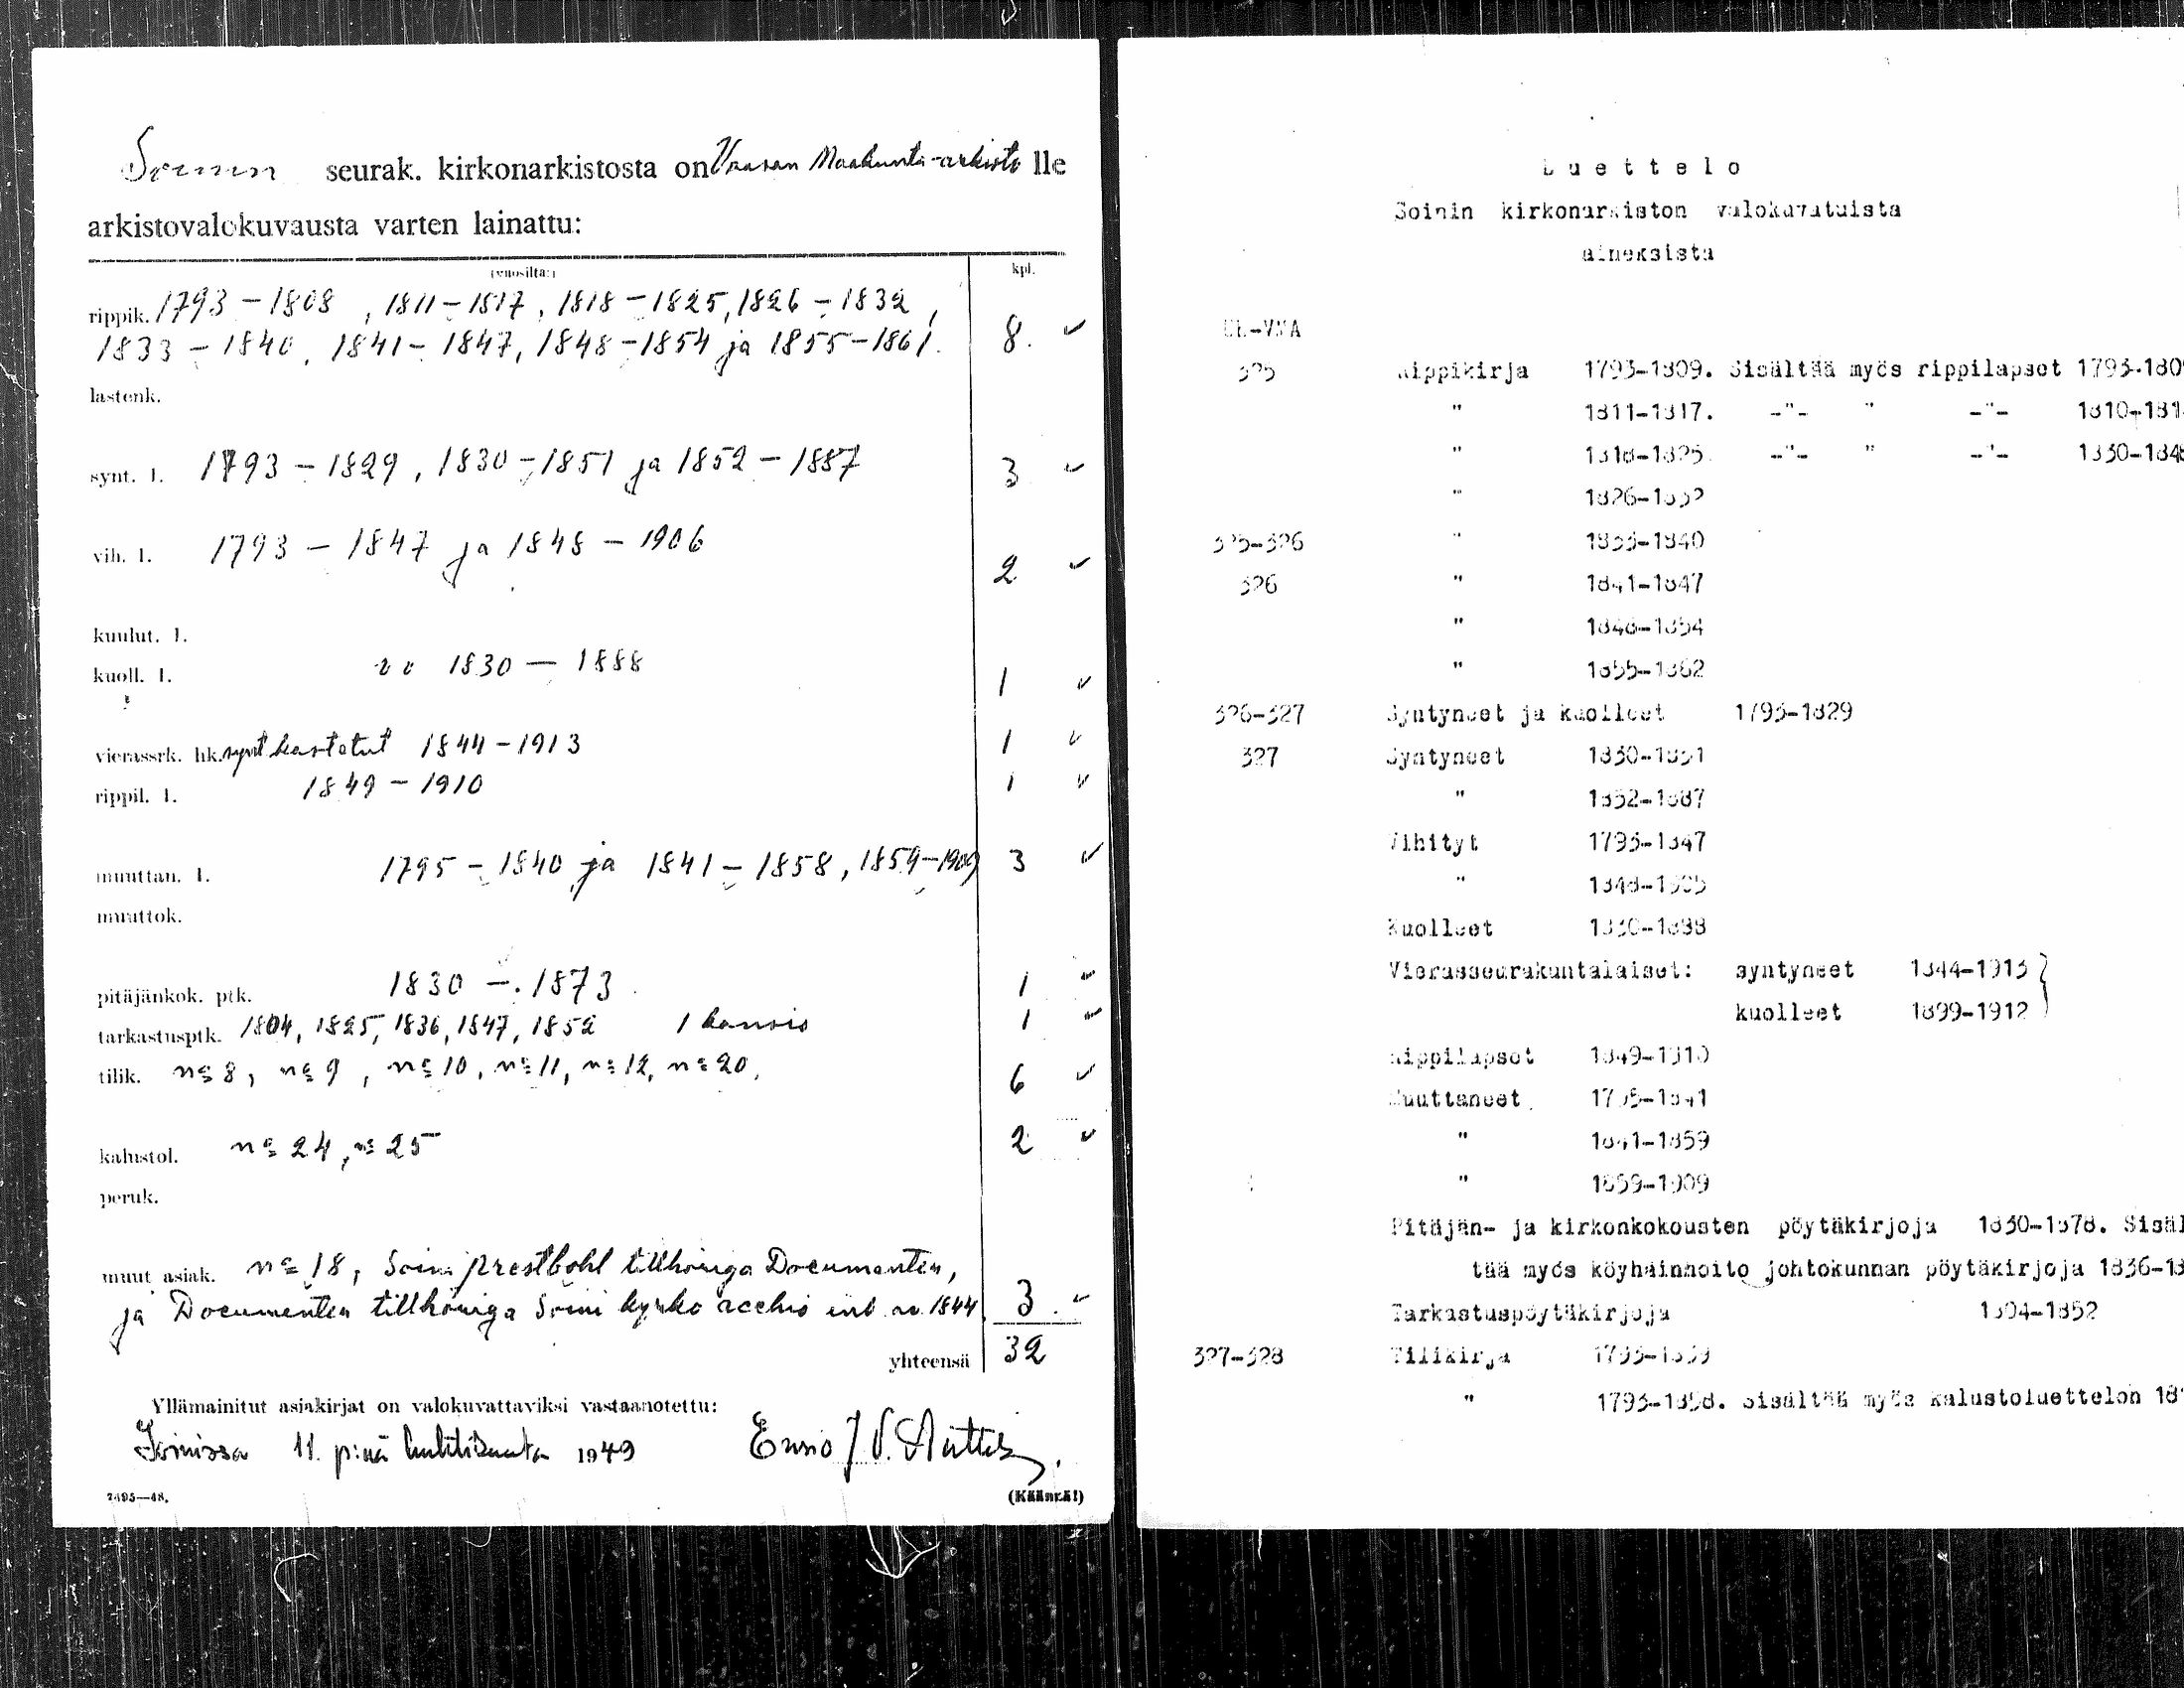 Soinin seurak. kirkonarkistosta on Vaasan Maakunta-arkisto lle
arkistovalokuvausta varten lainattu:
(vuosilta:) kpl.
rippik. 1793 – 1808, 1811 – 1817, 1818 – 1825, 1826 – 1832,
1833 – 1840, 1841 – 1847, 1848 – 1854 ja 1855 – 1861. 8.
lastenk.
synt. l. 1793 – 1829, 1830 – 1851 ja 1852 – 1887 3
vih. l. 1793 – 1847 ja 1848 – 1906 2
kuulut. l.
kuoll. l. 1830 – 1888 1
vierassrk. hk. synt kastetut 1844 – 1913 1
rippil. l. 1849 – 1910 1
muuttan. l. 1795 – 1840 ja 1841 – 1858, 1859 – 1909 3
muuttok.
pitäjänkok. ptk. 1830 – 1873 1
tarkastusptk. 1804, 1825, 1836, 1847, 1852 1 kansio 1
tilik. no 8, no 9, no 10, no 11, no 12, no 20, 6
kalustol. no 24, no 25 2
peruk.
muut asiak. no 18, Soini prestbohl tillhöriga Documenten,
ja Documenten tillhöriga Soini kyrko 1844 3
yhteensä 32
Yllämainitut asiakirjat on valokuvattaviksi vastaanotettu:
Soinissa 11. p:nä huhtikuuta 1949 Ensio J. V.
7495—48. (Käännä!)
Luettelo
Soinin kirkonarkiston valokuvatuista
aineksista
UL-VMA
325 Rippikirja 1793-1809. Sisältää myös rippilapset 1793-180
" 1811-1817. -"- " -"- 1810-181
" 1818-1825. -"- " -"- 1830-184
" 1826-1832
325-326 " 1833-1840
326 " 1841-1847
" 1848-1854
" 1855-1862
326-327 Syntyneet ja kuolleet 1793-1829
327 Syntyneet 1830-1851
" 1852-1887
Vihityt 1793-1847
" 1848-1905
Kuolleet 1830-1888
Vierasseurakuntalaiset: syntyneet 1844-1913
kuolleet 1899-1912
Rippilapset 1849-1910
Muuttaneet 1795-1841
" 1841-1859
" 1859-1909
Pitäjän- ja kirkonkokousten pöytäkirjoja 1830-1878. Sisäl
tää myös köyhäinhoito johtokunnan pöytäkirjoja 1836-18
Tarkastuspöytäkirjoja 1804-1852
327-328 Tilikirja 1793-1839
" 1793-1858. Sisältää myös kalustoluettelon 18